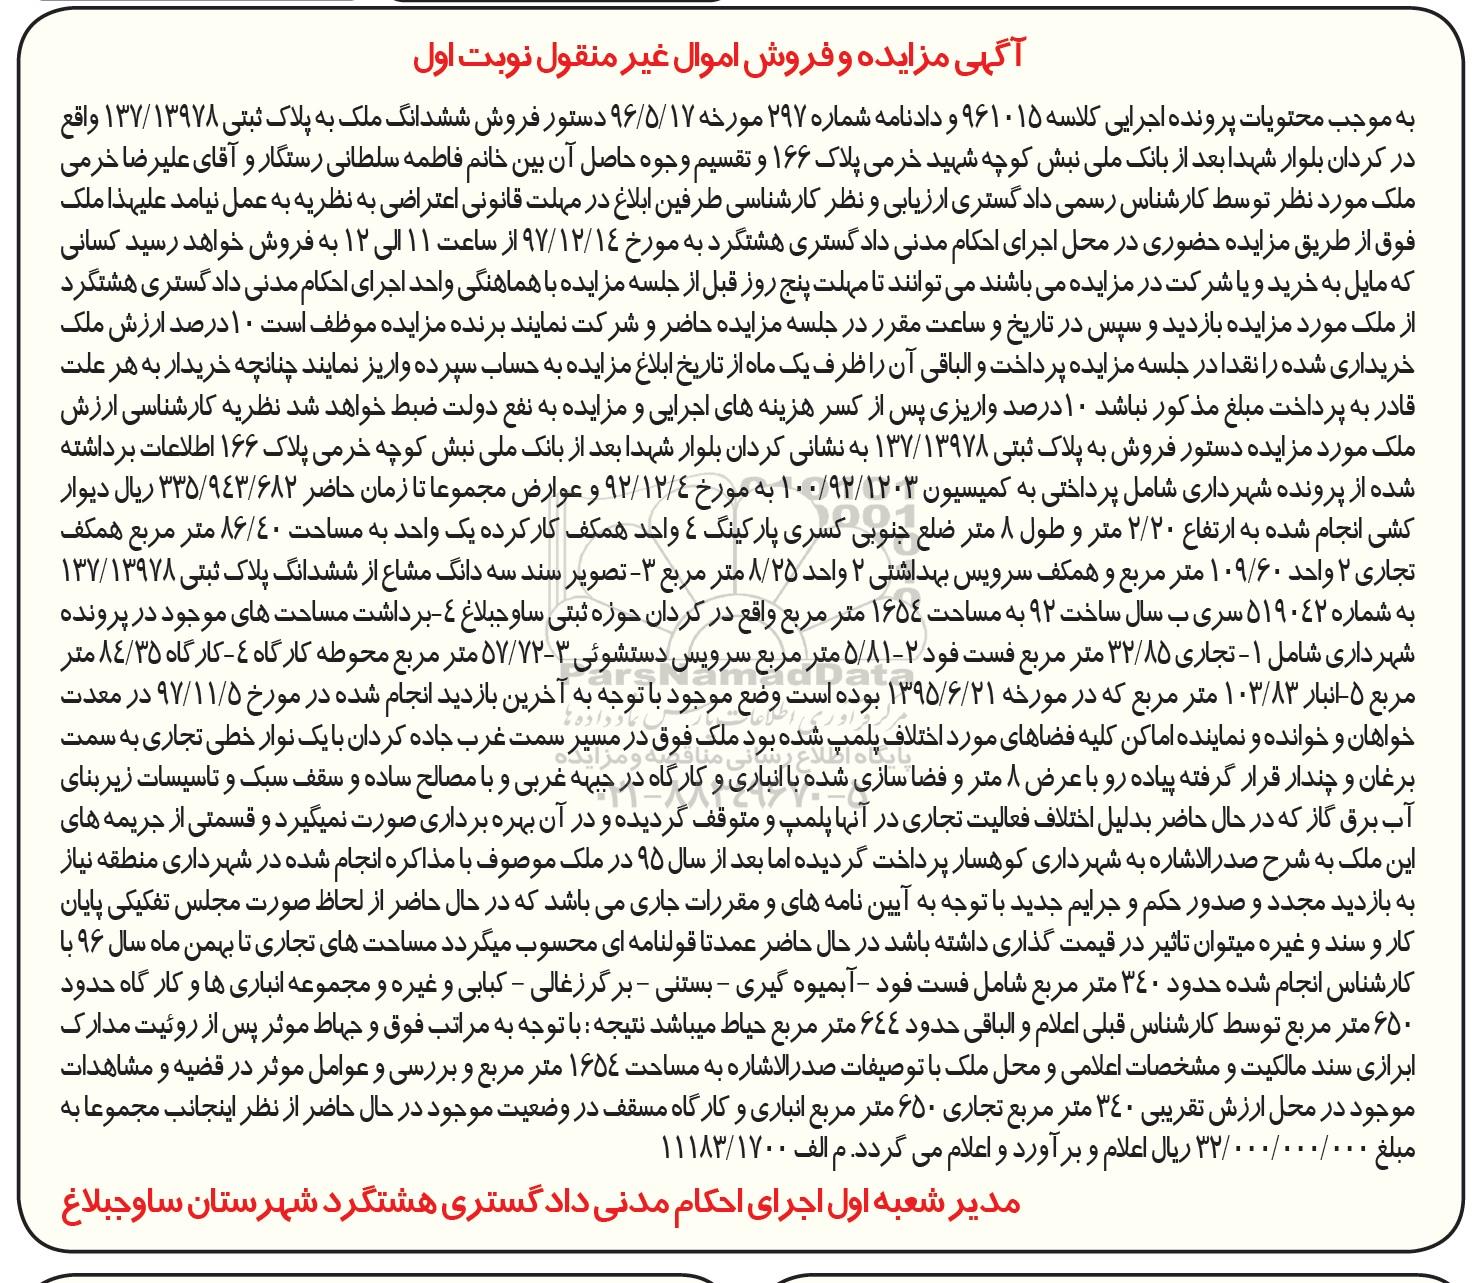 آگهی مزایده و فروش اموال غیر منقول نوبت اول
به موجب محتویات پرونده اجرایی کلاسه ۹۶۱۰۱۵ و دادنامه شماره ۲۹۷ مورخه ۹۶/۵/۱۷ دستور فروش ششدانگ ملک به پلاک ثبتی ۱۳۷/۱۳۹۷۸ واقع
در کردان بلوار شهدا بعد از بانک ملی نبش کوچه شهید خرمی پلاک ۱۶۶ و تقسیم وجوه حاصل آن بین خانم فاطمه سلطانی رستگار و آقای علیرضا خرمی
ملک مورد نظر توسط کارشناس رسمی دادگستری ارزیابی و نظر کارشناسی طرفین ابلاغ در مهلت قانونی اعتراضی به نظریه به عمل نیامد علیهذا ملک
فوق از طریق مزایده حضوری در محل اجرای احکام مدنی دادگستری هشتگرد به مورخ ۹۷/۱۲/۱٤ از ساعت ۱۱ الی ۱۲ به فروش خواهد رسید کسانی
که مایل به خرید و یا شرکت در مزایده می باشند می توانند تا مهلت پنج روز قبل از جلسه مزایده با هماهنگی واحد اجرای احکام مدنی دادگستری هشتگرد
از ملک مورد مزایده بازدید و سپس در تاریخ و ساعت مقرر در جلسه مزایده حاضر و شرکت نمایند برنده مزایده موظف است ۱۰درصد ارزش ملک
خریداری شده را نقدا در جلسه مزایده پرداخت و الباقی آن را ظرف یک ماه از تاریخ ابلاغ مزایده به حساب سپرده واریز نمایند چنانچه خریدار به هر علت
قادر به پرداخت مبلغ مذکور نباشد ۱۰درصد واریزی پس از کسر هزینه های اجرایی و مزایده به نفع دولت ضبط خواهد شد نظریه کارشناسی ارزش
ملک مورد مزایده دستور فروش به پلاک ثبتی ۱۳۷/۱۳۹۷۸ به نشانی کردان بلوار شهدا بعد از بانک ملی نبش کوچه خرمی پلاک ۱۶۶ اطلاعات برداشته
شده از پرونده شهرداری شامل پرداختی به کمیسیون ۱۰۰/۹۲/۱۲۰۳ به مورخ ۹۲/۱۲/٤ و عوارض مجموعا تا زمان حاضر ۳۳۵/۹٤۳/۶۸۲ ریال دیوار
کشی انجام شده به ارتفاع ۲/۲۰ متر و طول ۸ متر ضلع جنوبی کسری پارکینگ ٤ واحد همکف کارکرده یک واحد به مساحت ۸۶/٤۰ متر مربع همکف
تجاری ۲ واحد ۱۰۹/۶۰ متر مربع و همکف سرویس بهداشتی ۲ واحد ۸/۲۵ متر مربع ۳- تصویر سند سه دانگ مشاع از ششدانگ پلاک ثبتی ۱۳۷/۱۳۹۷۸
به شماره ۵۱۹۰٤۲ سری ب سال ساخت ۹۲ به مساحت ۱۶۵٤ متر مربع واقع در کردان حوزه ثبتی ساوجبلاغ ٤-برداشت مساحت های موجود در پرونده
شهرداری شامل ۱- تجاری ۳۲/۸۵ متر مربع فست فود ۲-۵/۸۱ متر مربع سرویس دستشوئی ۳-۵۷/۷۲ متر مربع محوطه کارگاه ٤-کارگاه ۸٤/۳۵ متر
مربع ۵-انبار ۱۰۳/۸۳ متر مربع که در مورخه ۱۳۹۵/۶/۲۱ بوده است وضع موجود با توجه به آخرین بازدید انجام شده در مورخ ۹۷/۱۱/۵ در معدت
خواهان و خوانده و نماینده اماکن کلیه فضاهای مورد اختلاف پلمپ شده بود ملک فوق در مسیر سمت غرب جاده کردان با یک نوار خطی تجاری به سمت
برغان و چندار قرار گرفته پیاده رو با عرض ۸ متر و فضا سازی شده با انباری و کارگاه در جبهه غربی و با مصالح ساده و سقف سبک و تاسیسات زیربنای
آب برق گاز که در حال حاضر بدلیل اختلاف فعالیت تجاری در آنها پلمپ و متوقف گردیده و در آن بهره برداری صورت نمیگیرد و قسمتی از جریمه های
این ملک به شرح صدرالاشاره به شهرداری کوهسار پرداخت گردیده اما بعد از سال ۹۵ در ملک موصوف با مذاکره انجام شده در شهرداری منطقه نیاز
به بازدید مجدد و صدور حکم و جرایم جدید با توجه به آیین نامه های و مقررات جاری می باشد که در حال حاضر از لحاظ صورت مجلس تفکیکی پایان
کار و سند و غیره میتوان تاثیر در قیمت گذاری داشته باشد در حال حاضر عمدتا قولنامه ای محسوب میگردد مساحت های تجاری تا بهمن ماه سال ۹۶ با
کارشناس انجام شده حدود ۳٤۰ متر مربع شامل فست فود -آبمیوه گیری - بستنی - برگر زغالی - کبابی و غیره و مجموعه انباری ها و کار گاه حدود
۶۵۰ متر مربع توسط کارشناس قبلی اعلام و الباقی حدود ۶٤٤ متر مربع حیاط میباشد نتیجه : با توجه به مراتب فوق و جهاط موثر پس از روئیت مدارک
ابرازی سند مالکیت و مشخصات اعلامی و محل ملک با توصیفات صدرالاشاره به مساحت ۱۶۵٤ متر مربع و بررسی و عوامل موثر در قضیه و مشاهدات
موجود در محل ارزش تقریبی ۳٤۰ متر مربع تجاری ۶۵۰ متر مربع انباری و کارگاه مسقف در وضعیت موجود در حال حاضر از نظر اینجانب مجموعا به
مبلغ ۳۲/۰۰۰/۰۰۰/۰۰۰ ریال اعلام و برآورد و اعلام می گردد. م الف ۱۱۱۸۳/۱۷۰۰
مدیر شعبه اول اجرای احکام مدنی دادگستری هشتگرد شهرستان ساوجبلاغ
ParsNamadData
مرکز فرآوری اطلاعات پارس نماد داده ها
پایگاه اطلاع رسانی مناقصه و مزایده
۰۲۱-۸۸۳٤۹۶۷۰-۵